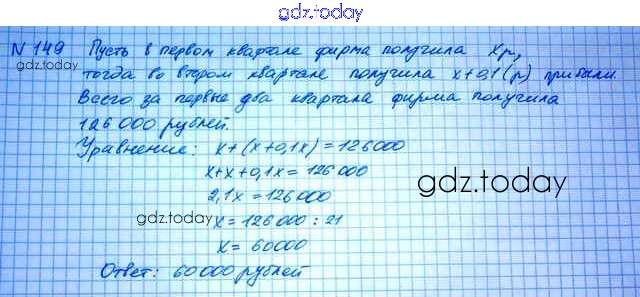 gdz.today
N 149 Пусть в первом квартале фирма получила x р,
gdz.today
тогда во втором квартале получила x+0,1(р) прибыли.
Всего за первые два квартала фирма получила
126 000 рублей.
Уравнение: x+(x+0,1x)=126000
x+x+0,1x=126 000
gdz.today
2,1x=126000
gdz.today
x=126000:21
x=60000
Ответ: 60000 рублей